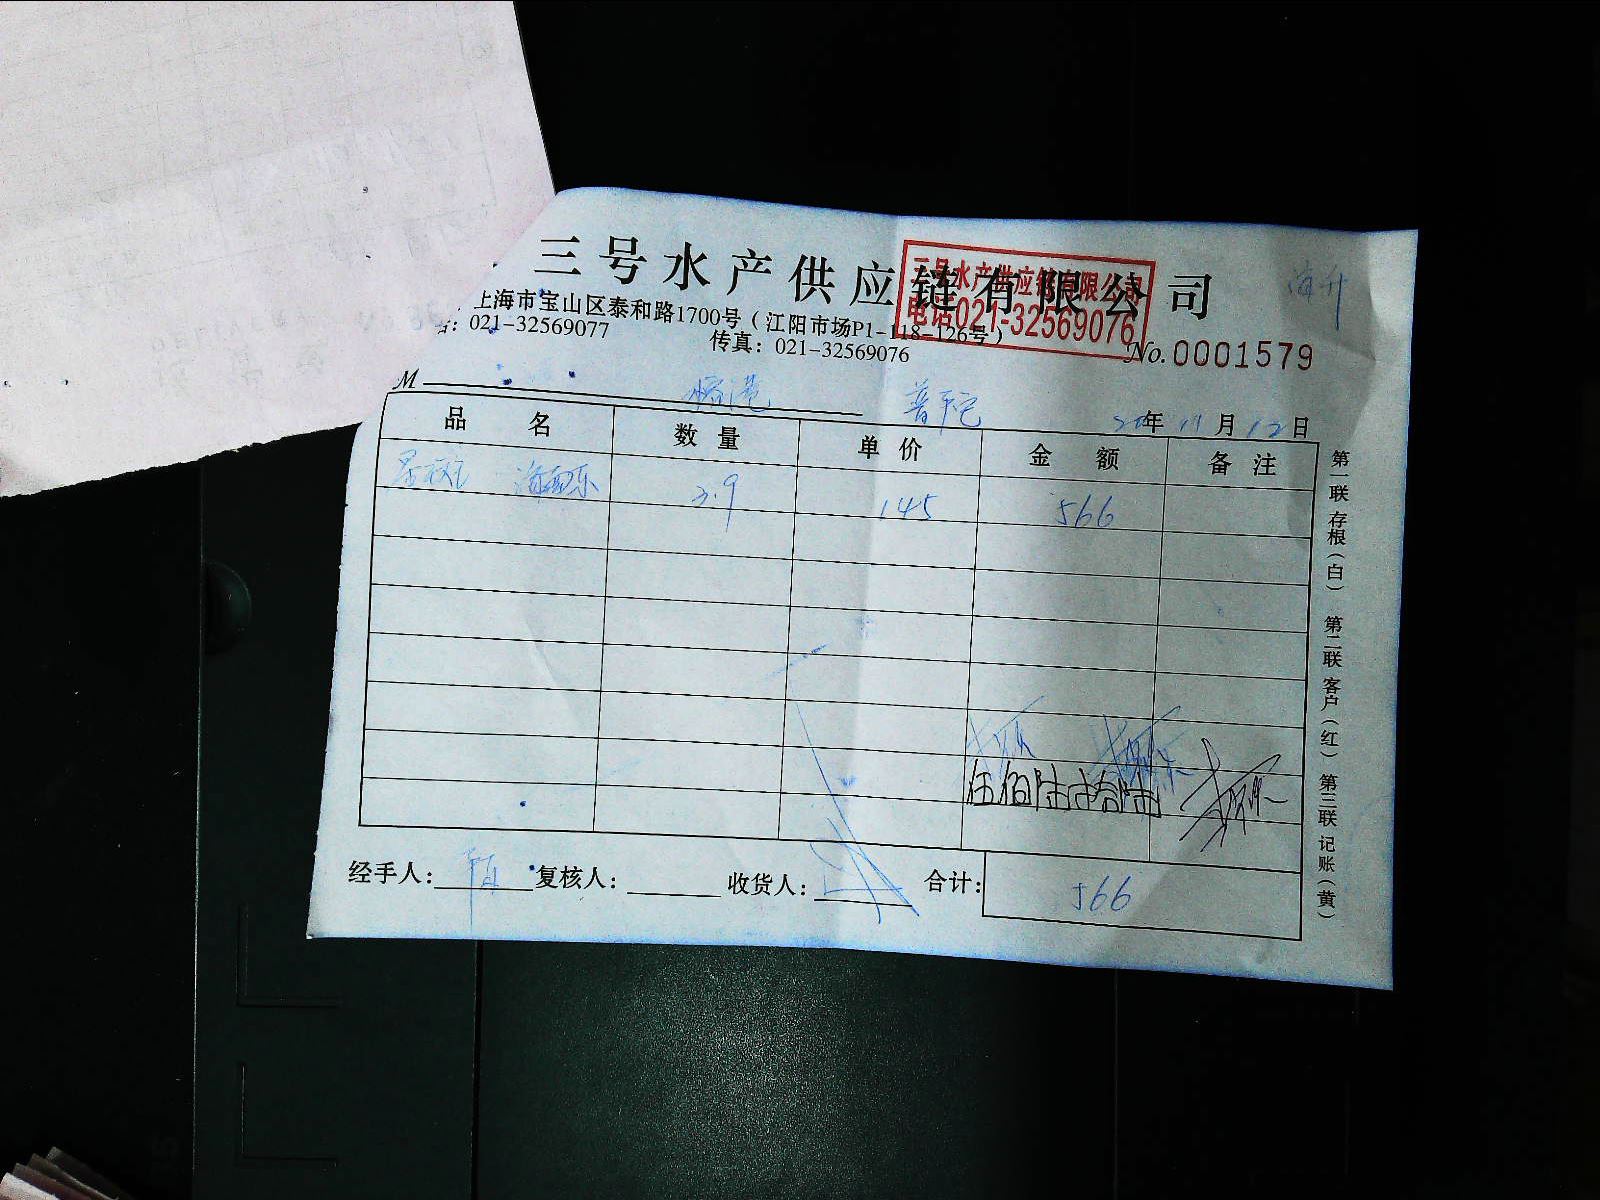 三号水产供应链有限公司
三号水产供应链有限公司
电话021-32569076
上海市宝山区泰和路1700号（江阳市场P1-118-126号）
021-32569077 传真：021-32569076
No.0001579
M 普陀
年 11 月 12 日
品 名 数 量 单 价 金 额 备 注
3.9 145 566
伍佰陆十陆
经手人： 复核人： 收货人： 合计： 566
第一联 存根（白） 第二联 客户（红） 第三联 记账（黄）